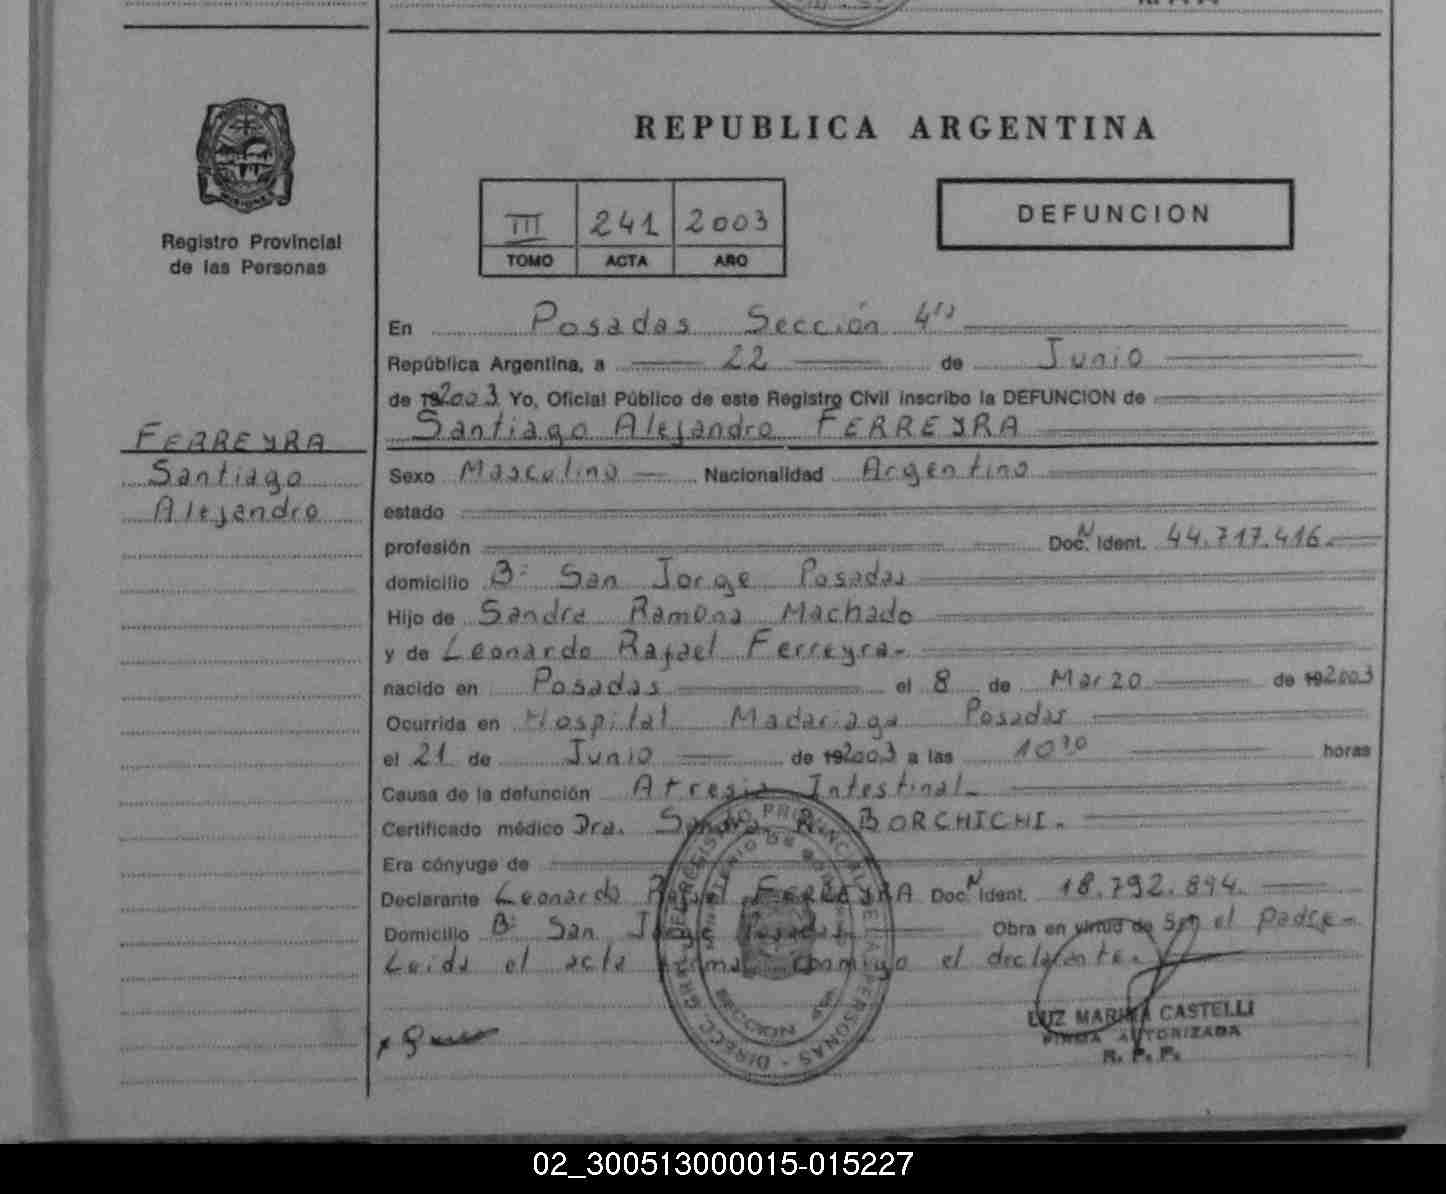 REPUBLICA ARGENTINA
Registro Provincial
de las Personas
III 241 2003
TOMO ACTA AÑO
DEFUNCION
FERREYRA
Santiago
Alejandro
En Posadas Sección 4ta
República Argentina, a 22 de Junio
de 192003 Yo, Oficial Público de este Registro Civil inscribo la DEFUNCION de
Santiago Alejandro FERREYRA
Sexo Masculino Nacionalidad Argentino
estado
profesión Doc. N Ident. 44.717.416.
domicilio Bº San Jorge Posadas
Hijo de Sandra Ramona Machado
y de Leonardo Rafael Ferreyra.
nacido en Posadas el 8 de Marzo de 192003
Ocurrida en Hospital Madariaga Posadas
el 21 de Junio de 192003 a las 10³⁰ horas
Causa de la defunción Atresia Intestinal.
Certificado médico Dra. Sandra R. BORCHICHI.
Era cónyuge de
Declarante Leonardo Rafael FERREYRA Doc. N Ident. 18.792.894.
Domicilio Bº San Jorge Posadas Obra en virtud de Ser el padre.
Leida el acta firma conmigo el declarante.
LUZ MARINA CASTELLI
FIRMA AUTORIZADA
R. P. P.
02_300513000015-015227